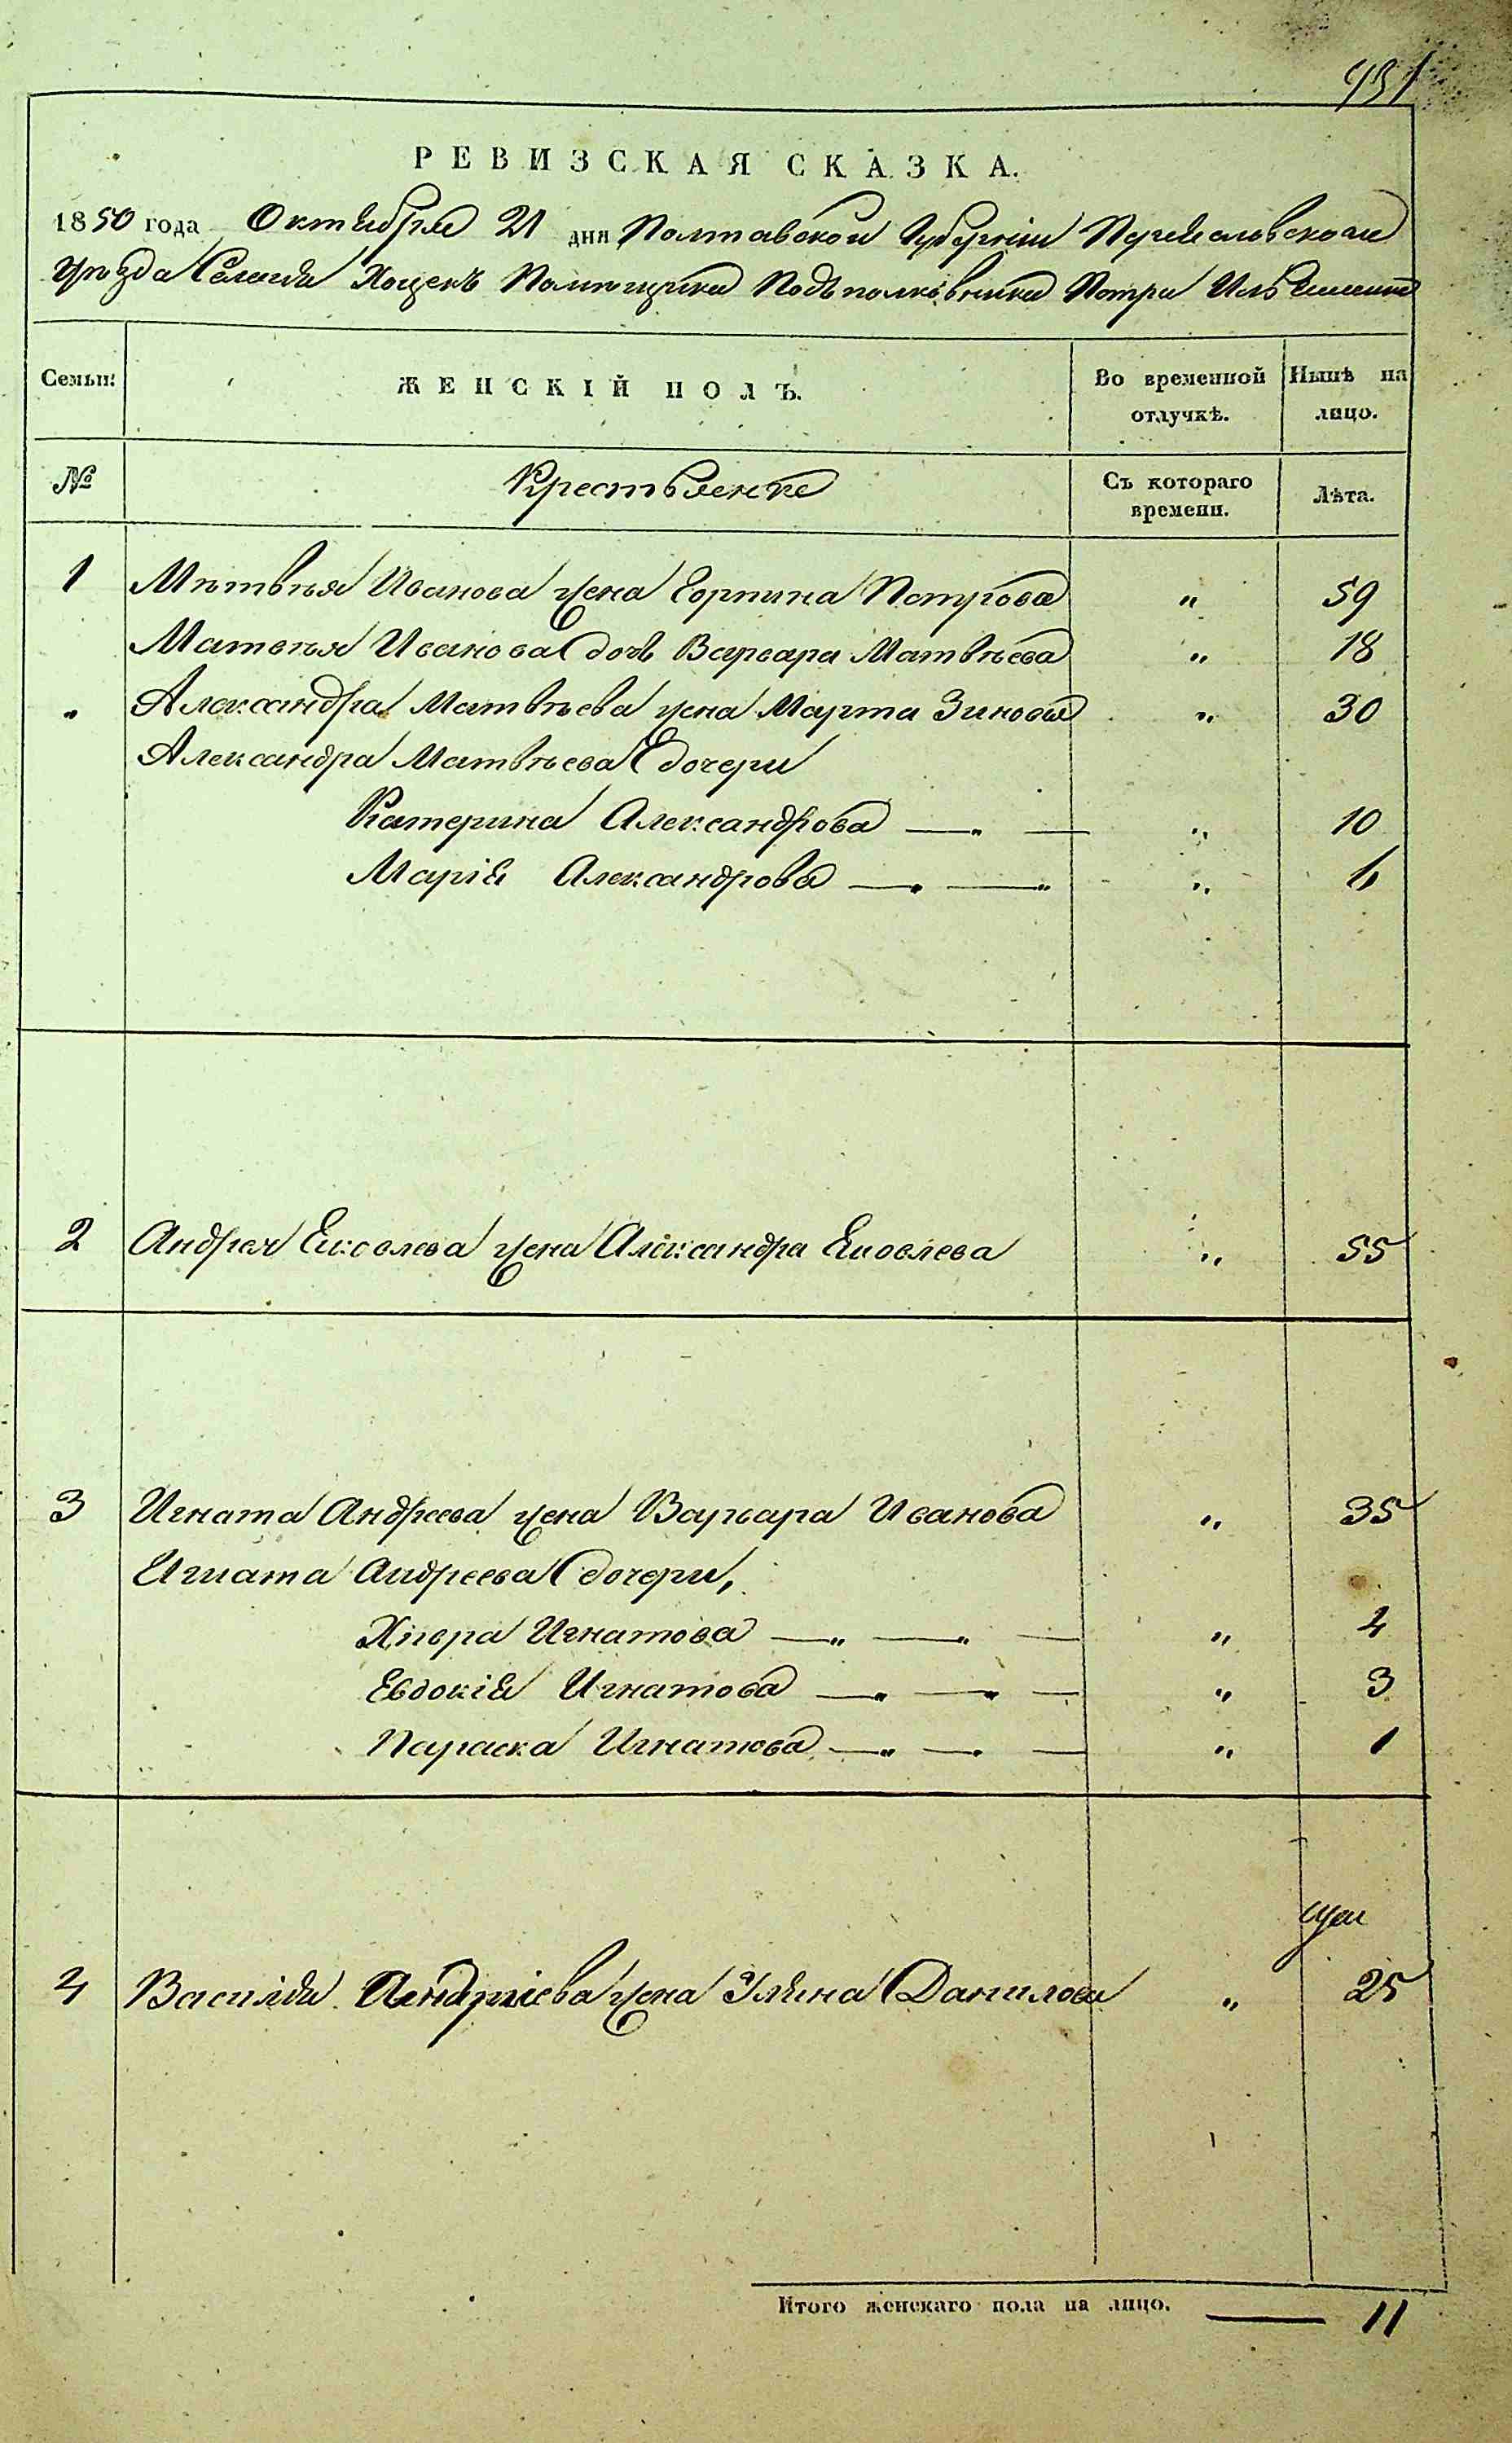 431
РЕВИЗСКАЯ СКАЗКА.
1850 года Октября 21 дня Полтавской Губернии Переяславского
Уезда Селенія Хоцекъ Помещика Подъполковника Петра
Семьи: ЖЕНСКІЙ ПОЛЪ. Во временной отлучкѣ. Нынѣ на лицо.
№ Крестьянке Съ котораго времени. Лѣта.
1 Матвѣя Иванова жена Горпина Петрова „ 59
Матвѣя Иванова дочь Варвара Матвѣева „ 18
„ Александра Матвѣева жена Марта Зинова „ 30
Александра Матвѣева дочери
Катерина Александрова — „ — „ 10
Марія Александрова — „ — „ „ 6
2 Андрея Яковлева жена Александра Яковлева „ 55
3 Игната Андреева жена Варвара Иванова „ 35
Игната Андреева дочери,
Хивра Игнатова — „ — „ — „ 4
Евдокія Игнатова — „ — „ — „ 3
Параска Игнатова — „ — „ — „ 1
4 Василія Андріева жена Уляна Данилова „ 25
Итого женскаго пола на лицо. — 11